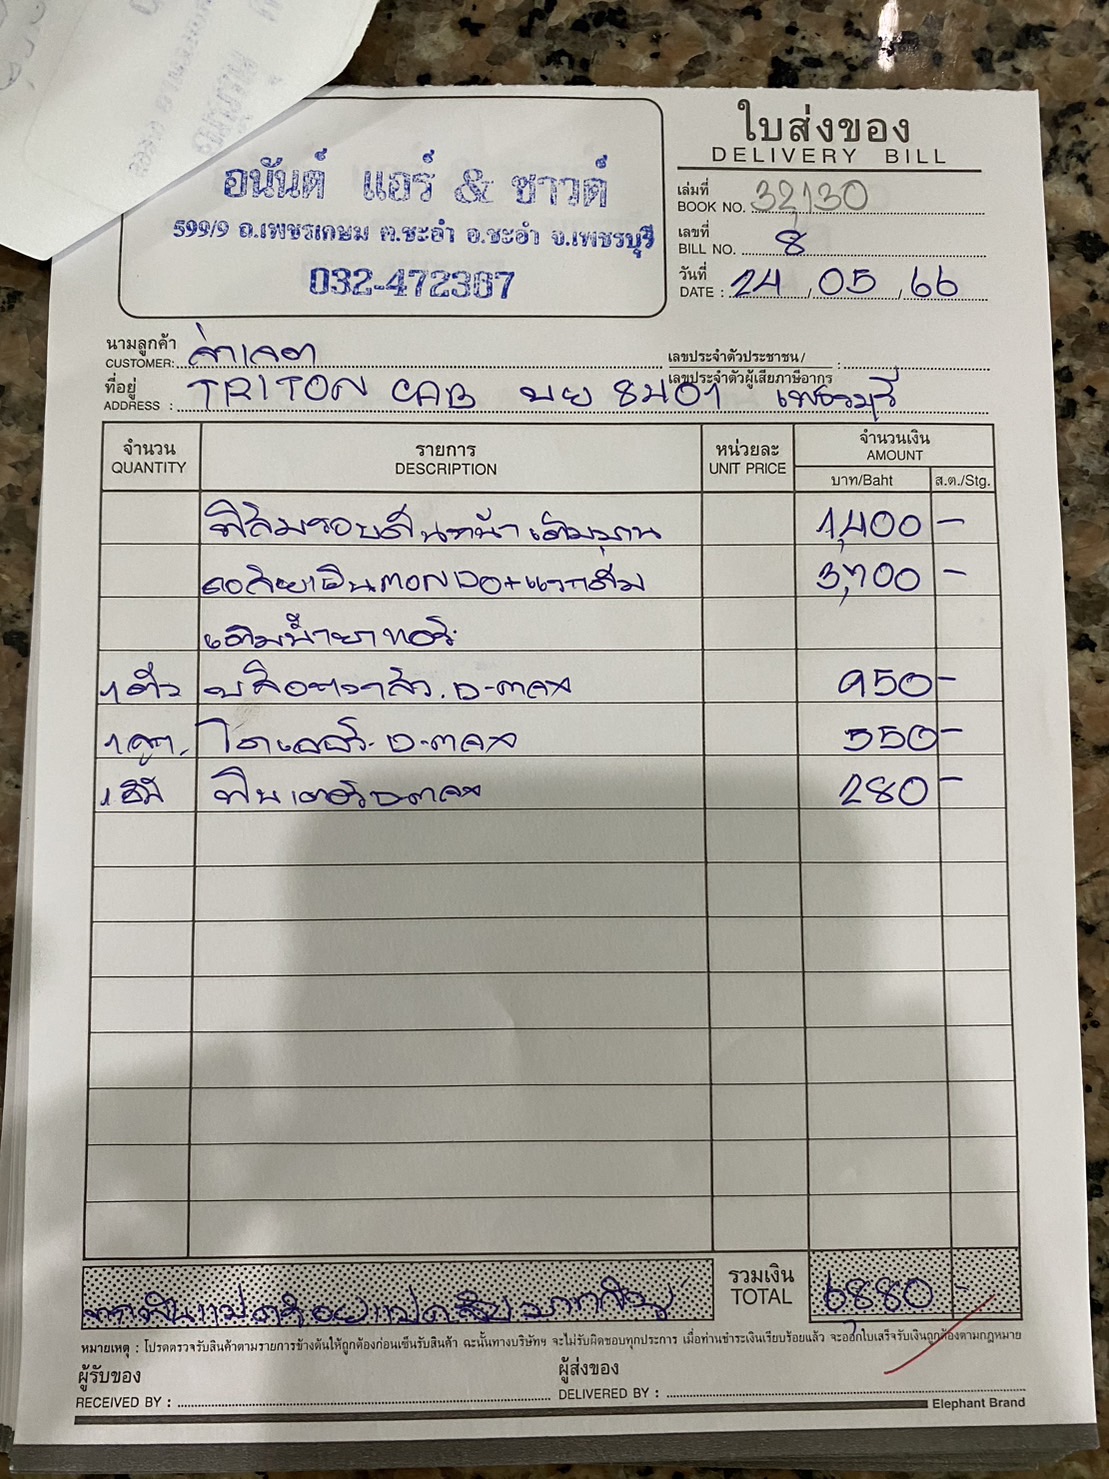 ใบส่งของ
DELIVERY BILL
อนันต์ แอร์ & ซาวด์
599/9 ถ.เพชรเกษม ต.ชะอำ อ.ชะอำ จ.เพชรบุรี
032-472367
เล่มที่
BOOK NO. 32,130
เลขที่
BILL NO. 8
วันที่
DATE : 24 / 05 / 66
นามลูกค้า
CUSTOMER:
เลขประจำตัวประชาชน /
เลขประจำตัวผู้เสียภาษีอากร :
ที่อยู่
ADDRESS : TRITON CAB บย 8401 เพชรบุรี
จำนวน รายการ หน่วยละ จำนวนเงิน
QUANTITY DESCRIPTION UNIT PRICE AMOUNT
บาท/Baht ส.ต./Stg.
ฟิล์มรอบคันหน้าเต็มบาน 1,400 -
3,700 -
เติมน้ำยาแอร์
1 ตัว D-max 950 -
1 ลูก ไดเออร์ D-max 550 -
1 ฟิลเตอร์ D-max 280 -
หกพันแปดร้อยแปดสิบบาทถ้วน
รวมเงิน
TOTAL 6,880 -
หมายเหตุ : โปรดตรวจรับสินค้าตามรายการข้างต้นให้ถูกต้องก่อนเซ็นรับสินค้า ฉะนั้นทางบริษัทฯ จะไม่รับผิดชอบทุกประการ เมื่อท่านชำระเงินเรียบร้อยแล้ว จะออกใบเสร็จรับเงินถูกต้องตามกฎหมาย
ผู้รับของ
RECEIVED BY :
ผู้ส่งของ
DELIVERED BY :
Elephant Brand